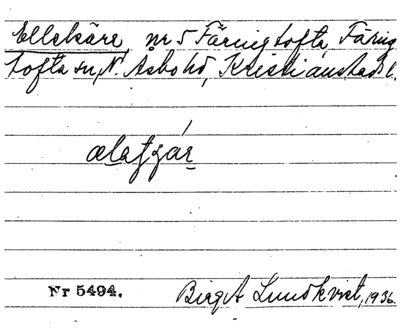 Ellekäre nr 5 Färingtofta, Färing
tofta sn, N. Åsbo hd, Kristianstads l.
ælatjár
Nr 5494.
Birgit Lundkvist, 1936.